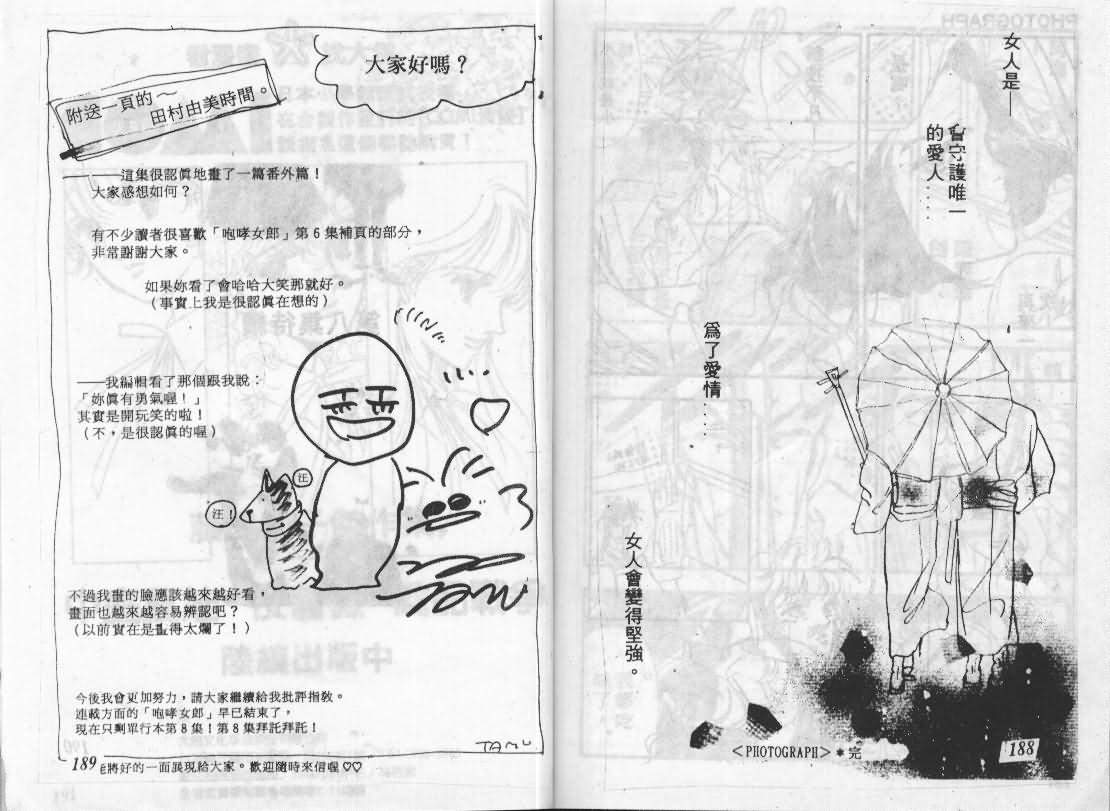 女人是——
會守護唯一
的愛人．．．．
為了愛情．．．．
女人會變得堅強。
＜PHOTOGRAPH＞＊完
188
大家好嗎？
附送一頁的～
田村由美時間。
——這集很認眞地畫了一篇番外篇！
大家感想如何？
有不少讀者很喜歡「咆哮女郎」第6集補頁的部分，
非常謝謝大家。
如果妳看了會哈哈大笑那就好。
（事實上我是很認眞在想的）
——我編輯看了那個跟我說：
「妳眞有勇氣喔！」
其實是開玩笑的啦！
（不，是很認眞的喔）
汪
汪！
不過我畫的臉應該越來越好看，
畫面也越來越容易辨認吧？
（以前實在是畫得太爛了！）
今後我會更加努力，請大家繼續給我批評指教。
連載方面的「咆哮女郎」早已結束了，
現在只剩單行本第8集！第8集拜託拜託！
TAMU
189
將好的一面展現給大家。歡迎隨時來信喔♡♡